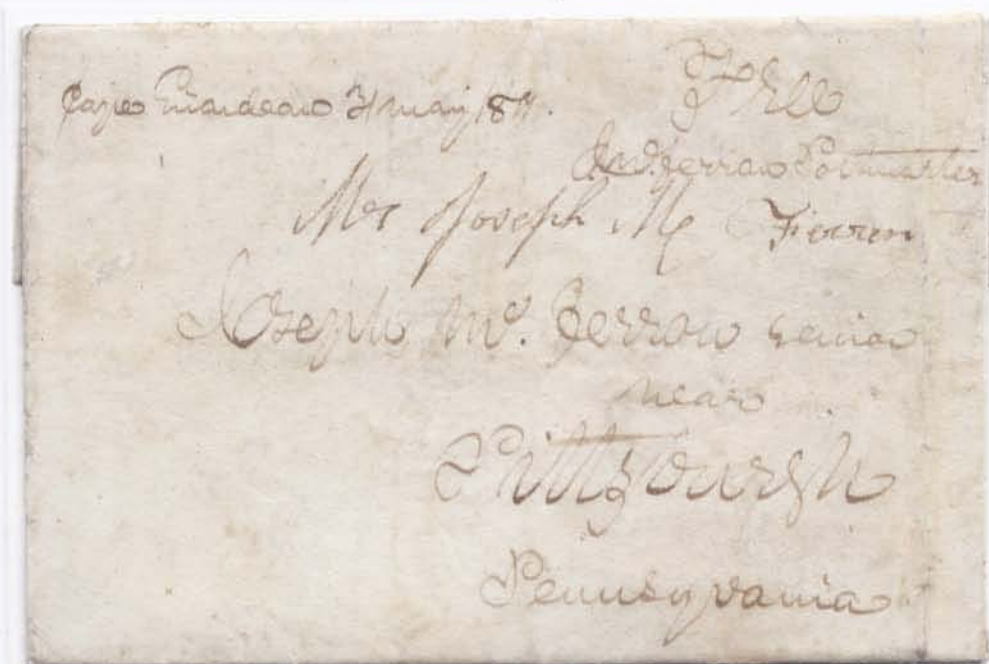 Cape Girardeau 31 May 1811.
Free
Postmaster
Mr Joseph Mc Ferren
Joseph Mc. Ferron senior
near
Pittsbourgh
Pennsyvania